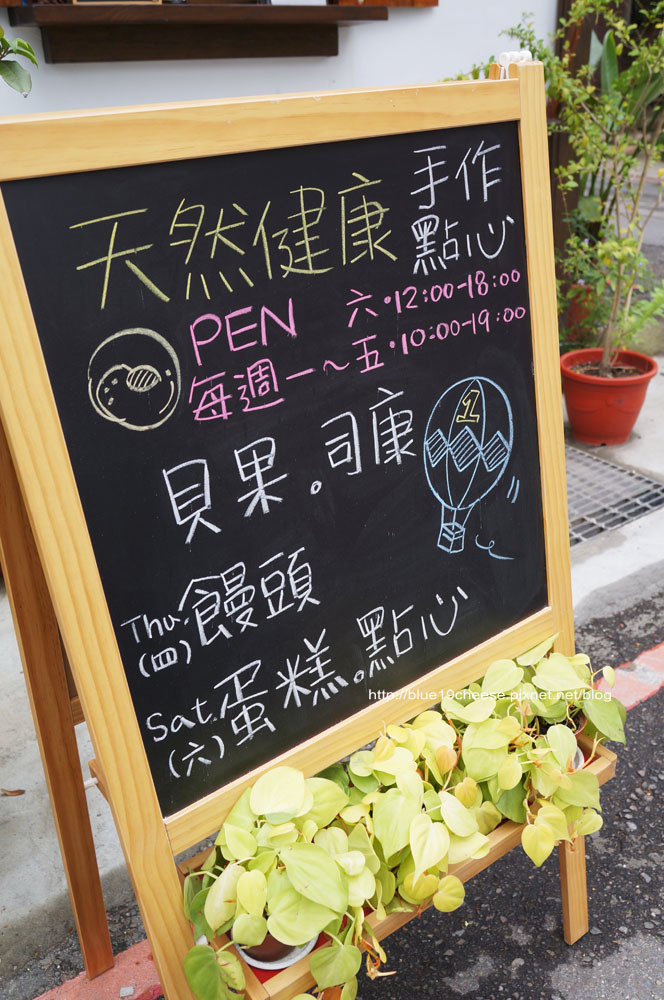 天然健康 手作
點心
PEN 六·12:00-18:00
每週一~五·10:00-19:00
1
貝果。司康
Thu. 饅頭
(四)
Sat. 蛋糕。點心
(六)
http://blue19cheese.pixnet.net/blog